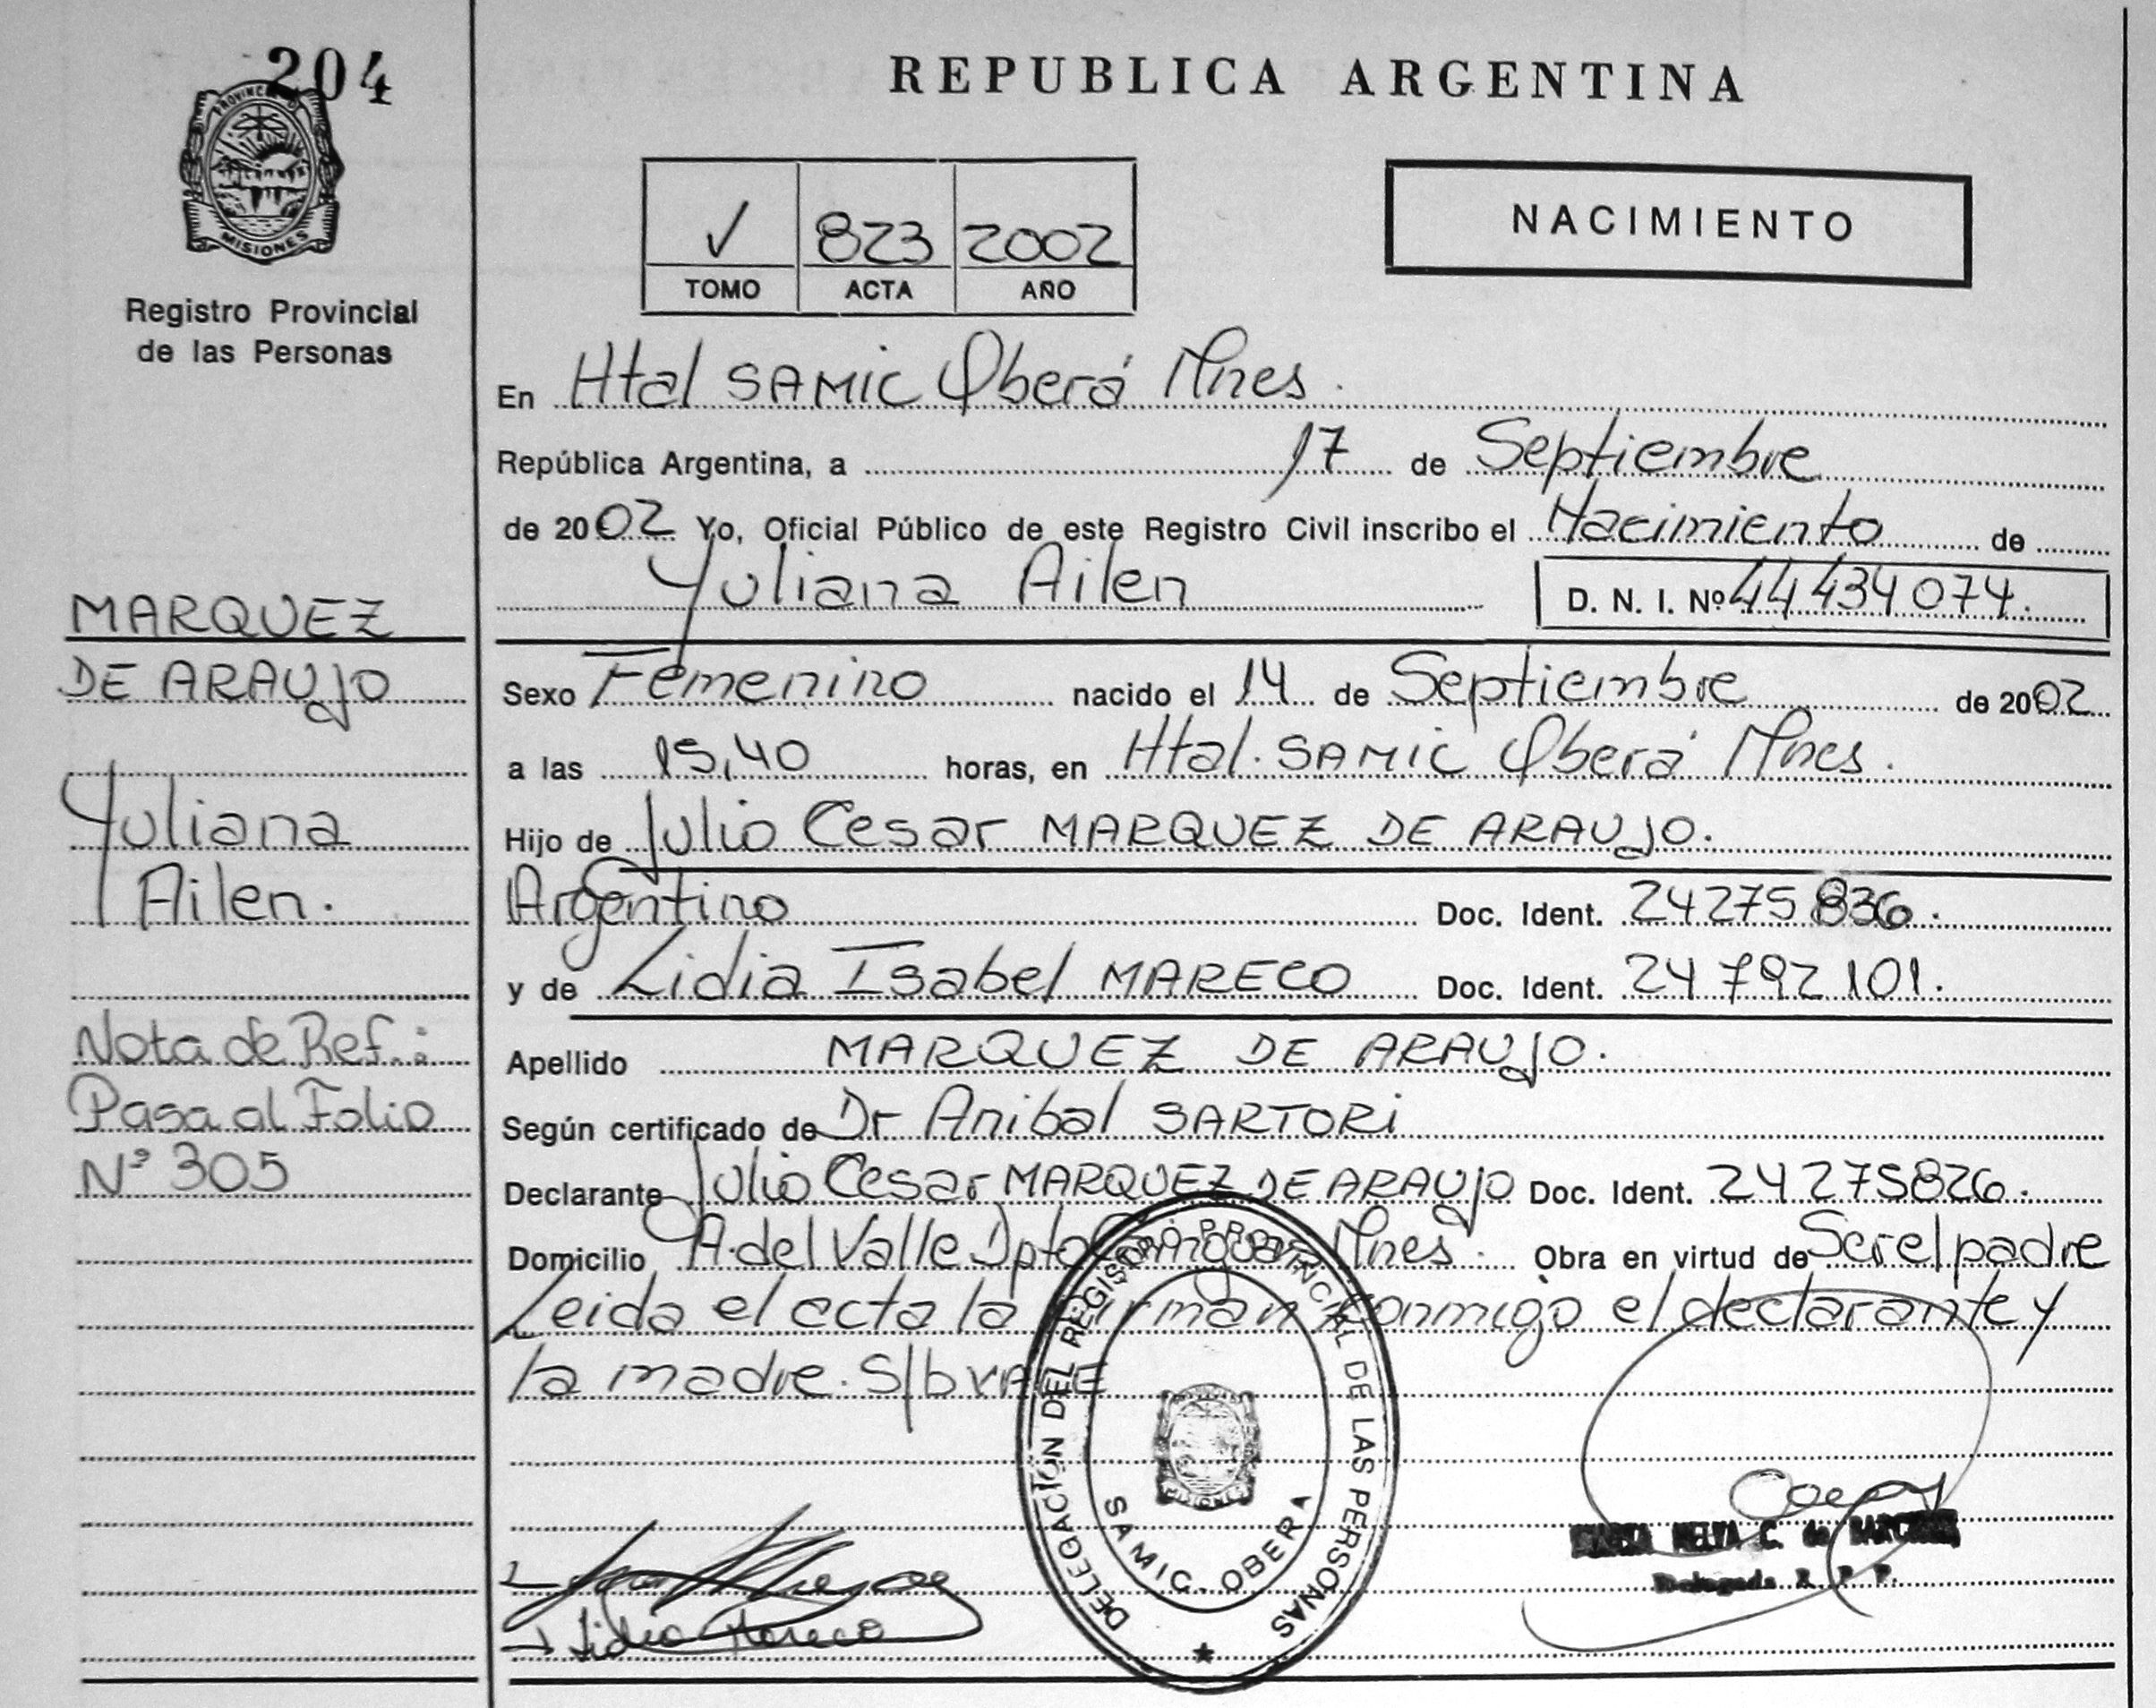 204
PROVINCIA
MISIONES
Registro Provincial
de las Personas
MARQUEZ
DE ARAUJO
Yuliana
Ailen.
Nota de Ref.:
Pasa al Folio
Nº 305
REPUBLICA ARGENTINA
V 823 2002
TOMO ACTA AÑO
NACIMIENTO
En Htal SAMIC Oberá Mnes.
República Argentina, a 17 de Septiembre
de 2002 Yo, Oficial Público de este Registro Civil inscribo el Nacimiento de
Yuliana Ailen D. N. I. Nº 44 434 074.
Sexo Femenino nacido el 14 de Septiembre de 2002
a las 15,40 horas, en Htal. SAMIC Oberá Mnes.
Hijo de Julio Cesar MARQUEZ DE ARAUJO.
Argentino Doc. Ident. 24 275 836.
y de Lidia Isabel MARECO Doc. Ident. 24 792 101.
Apellido MARQUEZ DE ARAUJO.
Según certificado de Dr Anibal SARTORI
Declarante Julio Cesar MARQUEZ DE ARAUJO Doc. Ident. 24 275826.
Domicilio A. del Valle Dpto Mnes. Obra en virtud de Ser el padre
Leida el acta la firman conmigo el declarante y
la madre. S/b VALE
DELEGACIÓN DEL REGISTRO PROVINCIAL DE LAS PERSONAS
MISIONES
SAMIC. OBERA
Lidia Mareco
C. de
Delegada R. P. P.